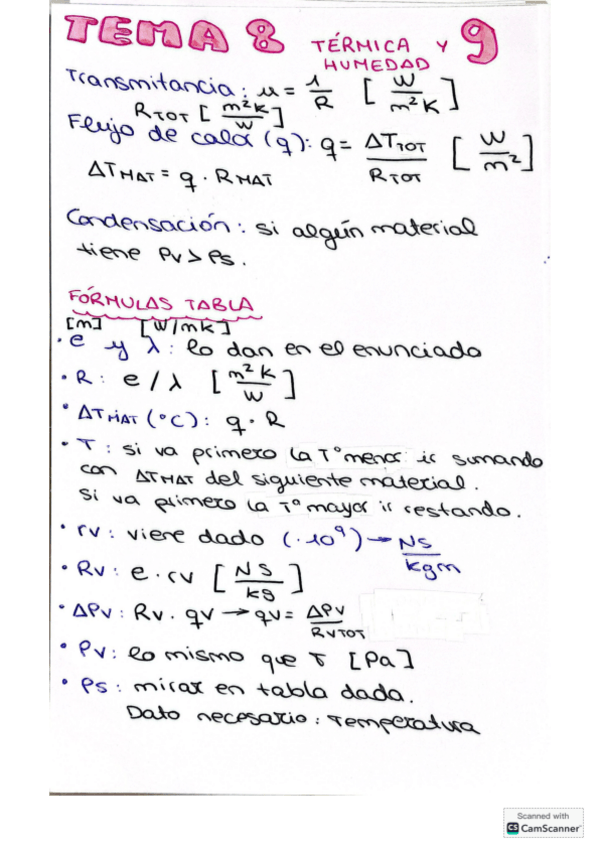 TEMA 8 TÉRMICA Y HUMEDAD 9
Transmitancia: u = 1/R [W/m²K]
RTOT [m²K/W]
Flujo de calor (q): q = ΔTTOT/RTOT [W/m²]
ΔTMAT = q · RMAT
Condensación: si algún material
tiene Pv > Ps.
FÓRMULAS TABLA
[m] [W/mK]
· e y λ: lo dan en el enunciado
· R: e / λ [m²K/W]
· ΔTMAT (°C): q · R
· T: si va primero la Tº menor ir sumando
con ΔTMAT del siguiente material.
Si va primero la Tº mayor ir restando.
· rv: viene dado (·10⁹) → NS/kgm
· Rv: e · rv [NS/kg]
· ΔPv: Rv · qv → qv = ΔPv/RVTOT
· Pv: lo mismo que T [Pa]
· Ps: mirar en tabla dada.
Dato necesario: Temperatura
Scanned with
CS CamScanner